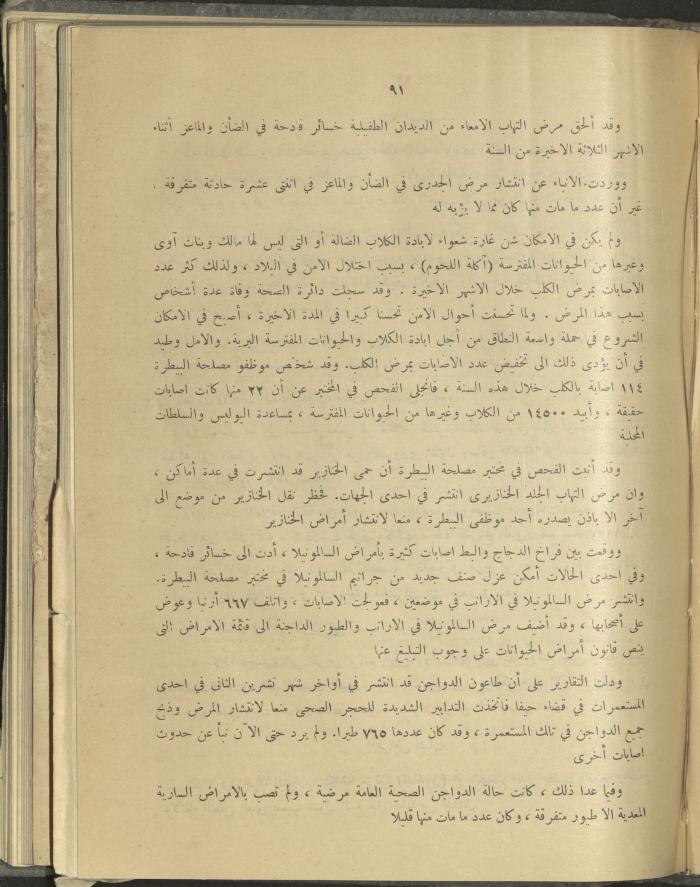 ٩١
وقد ألحق مرض التهاب الامعاء من الديدان الطفيلية خسائر فادحة في الضأن والماعز أثناء
الاشهر الثلاثة الاخيرة من السنة
ووردت الانباء عن انتشار مرض الجدرى في الضأن والماعز في اثنتى عشرة حادثة متفرقة ،
غير أن عدد ما مات منها كان مما لا يؤبه له
ولم يكن في الامكان شن غارة شعواء لابادة الكلاب الضالة أو التى ليس لها مالك وبنات آوى
وغيرها من الحيوانات المفترسة (آكلة اللحوم) ، بسبب اختلال الامن في البلاد ، ولذلك كثر عدد
الاصابات بمرض الكلب خلال الاشهر الاخيرة . وقد سجلت دائرة الصحة وفاة عدة أشخاص
بسبب هذا المرض . ولما تحسنت أحوال الامن تحسنا كبيرا في المدة الاخيرة ، أصبح في الامكان
الشروع في حملة واسعة النطاق من أجل ابادة الكلاب والحيوانات المفترسة البرية. والامل وطيد
في أن يؤدى ذلك الى تخفيض عدد الاصابات بمرض الكلب. وقد شخص موظفو مصلحة البيطرة
١١٤ اصابة بالكلب خلال هذه السنة ، فانجلى الفحص في المختبر عن أن ٢٢ منها كانت اصابات
حقيقة ، وأبيد ١٤٥٠٠ من الكلاب وغيرها من الحيوانات المفترسة ، بمساعدة البوليس والسلطات
المحلية
وقد أثبت الفحص في مختبر مصلحة البيطرة أن حمى الخنازير قد انتشرت في عدة أماكن ،
وان مرض التهاب الجلد الخنازيرى انتشر في احدى الجهات. فحظر نقل الخنازير من موضع الى
آخر الا باذن يصدره أحد موظفى البيطرة ، منعا لانتشار أمراض الخنازير
ووقعت بين فراخ الدجاج والبط اصابات كثيرة بأمراض السالمونيلا ، أدت الى خسائر فادحة ،
وفي احدى الحالات أمكن عزل صنف جديد من جراثيم السالمونيلا في مختبر مصلحة البيطرة.
وانتشر مرض السالمونيلا في الارانب في موضعين ، فعولجت الاصابات ، واتلف ٦٦٧ أرنبا وعوض
على أصحابها ، وقد أضيف مرض السالمونيلا في الارانب والطيور الداجنة الى قائمة الامراض التى
ينص قانون أمراض الحيوانات على وجوب التبليغ عنها
ودلت التقارير على أن طاعون الدواجن قد انتشر في أواخر شهر تشرين الثانى في احدى
المستعمرات في قضاء حيفا فاتخذت التدابير الشديدة للحجر الصحى منعا لانتشار المرض وذبح
جميع الدواجن في تلك المستعمرة ، وقد كان عددها ٧٦٥ طيرا. ولم يرد حتى الآن نبأ عن حدوث
اصابات أخرى
وفيما عدا ذلك ، كانت حالة الدواجن الصحية العامة مرضية ، ولم تصب بالامراض السارية
المعدية الا طيور متفرقة ، وكان عدد ما مات منها قليلا